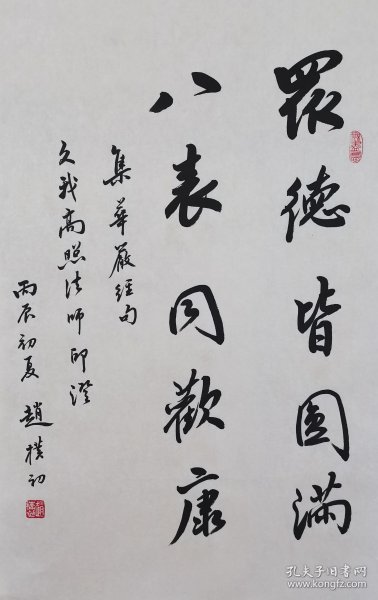 眾德皆圓滿
八表同歡康
集華嚴經句
久我高照法師印證
丙辰初夏 趙樸初
孔夫子旧书网